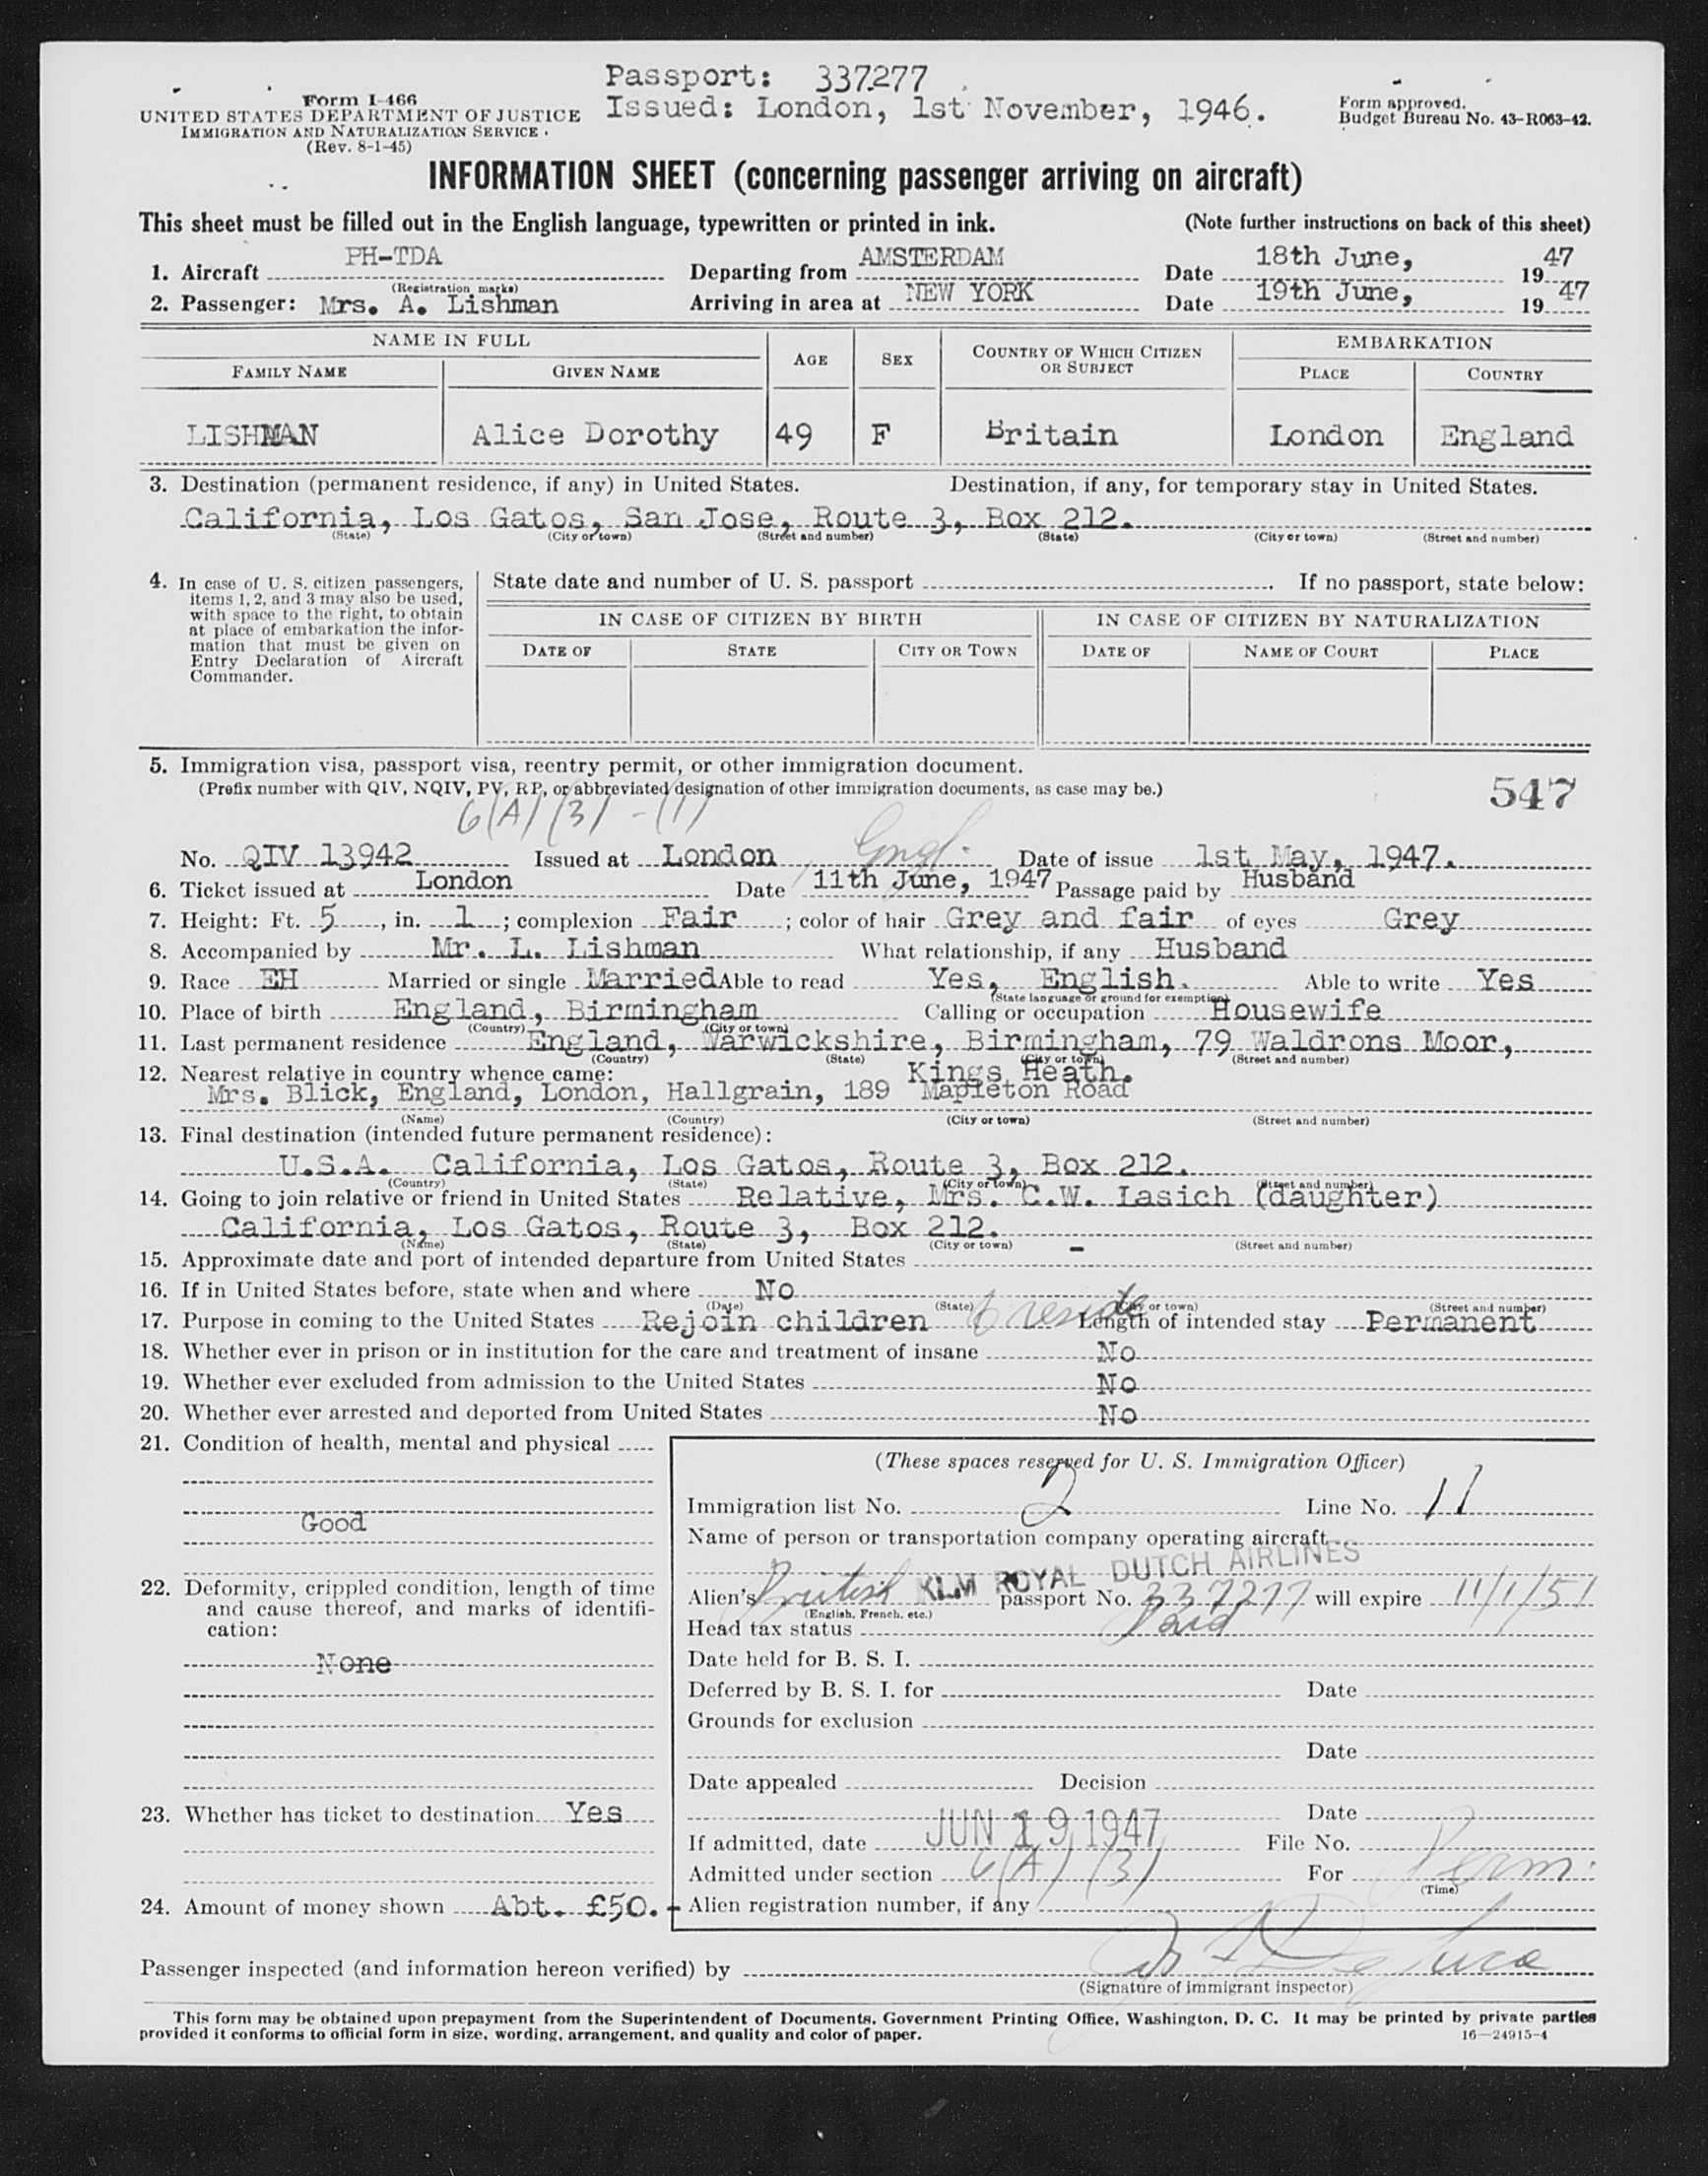 Passport: 337277
Issued: London, 1st November, 1946.
Form I-466
UNITED STATES DEPARTMENT OF JUSTICE
IMMIGRATION AND NATURALIZATION SERVICE
(Rev. 8-1-45)
Form approved.
Budget Bureau No. 43-R063-42.
INFORMATION SHEET (concerning passenger arriving on aircraft)
This sheet must be filled out in the English language, typewritten or printed in ink. (Note further instructions on back of this sheet)
1. Aircraft PH-TDA Departing from AMSTERDAM Date 18th June, 1947
(Registration marks)
2. Passenger: Mrs. A. Lishman Arriving in area at NEW YORK Date 19th June, 1947
NAME IN FULL AGE SEX COUNTRY OF WHICH CITIZEN OR SUBJECT EMBARKATION
FAMILY NAME GIVEN NAME PLACE COUNTRY
LISHMAN Alice Dorothy 49 F Britain London England
3. Destination (permanent residence, if any) in United States. Destination, if any, for temporary stay in United States.
California, Los Gatos, San Jose, Route 3, Box 212.
(State) (City or town) (Street and number) (State) (City or town) (Street and number)
4. In case of U. S. citizen passengers, items 1, 2, and 3 may also be used, with space to the right, to obtain at place of embarkation the information that must be given on Entry Declaration of Aircraft Commander.
State date and number of U. S. passport . If no passport, state below:
IN CASE OF CITIZEN BY BIRTH IN CASE OF CITIZEN BY NATURALIZATION
DATE OF STATE CITY OR TOWN DATE OF NAME OF COURT PLACE
5. Immigration visa, passport visa, reentry permit, or other immigration document.
(Prefix number with QIV, NQIV, PV, RP, or abbreviated designation of other immigration documents, as case may be.)
547
6(A)(3)-(1)
No. QIV 13942 Issued at London, Engl. Date of issue 1st May, 1947.
6. Ticket issued at London Date 11th June, 1947 Passage paid by Husband
7. Height: Ft. 5, in. 1; complexion Fair; color of hair Grey and fair of eyes Grey
8. Accompanied by Mr. L. Lishman What relationship, if any Husband
9. Race EH Married or single Married Able to read Yes, English. Able to write Yes
(State language or ground for exemption)
10. Place of birth England, Birmingham Calling or occupation Housewife
(Country) (City or town)
11. Last permanent residence England, Warwickshire, Birmingham, 79 Waldrons Moor,
(Country) (State) (City or town) (Street and number)
Kings Heath.
12. Nearest relative in country whence came:
Mrs. Blick, England, London, Hallgrain, 189 Mapleton Road
(Name) (Country) (City or town) (Street and number)
13. Final destination (intended future permanent residence):
U.S.A. California, Los Gatos, Route 3, Box 212.
(Country) (State) (City or town) (Street and number)
14. Going to join relative or friend in United States Relative, Mrs. C.W. Lasich (daughter)
California, Los Gatos, Route 3, Box 212.
(Name) (State) (City or town) (Street and number)
15. Approximate date and port of intended departure from United States -
16. If in United States before, state when and where No
(Date) (State) (City or town) (Street and number)
17. Purpose in coming to the United States Rejoin children to reside Length of intended stay Permanent
18. Whether ever in prison or in institution for the care and treatment of insane No
19. Whether ever excluded from admission to the United States No
20. Whether ever arrested and deported from United States No
21. Condition of health, mental and physical
Good
22. Deformity, crippled condition, length of time and cause thereof, and marks of identification:
None
23. Whether has ticket to destination Yes
24. Amount of money shown Abt. £50.
(These spaces reserved for U. S. Immigration Officer)
Immigration list No. 2 Line No. 11
Name of person or transportation company operating aircraft
KLM ROYAL DUTCH AIRLINES
Alien's British passport No. 337277 will expire 11/1/51
(English, French, etc.)
Head tax status Paid
Date held for B. S. I.
Deferred by B. S. I. for Date
Grounds for exclusion
Date
Date appealed Decision
Date
If admitted, date JUN 19 1947 File No.
Admitted under section 6(A)(3) For Perm.
(Time)
Alien registration number, if any
Passenger inspected (and information hereon verified) by
(Signature of immigrant inspector)
This form may be obtained upon prepayment from the Superintendent of Documents, Government Printing Office, Washington, D. C. It may be printed by private parties
provided it conforms to official form in size, wording, arrangement, and quality and color of paper. 16—24915-4